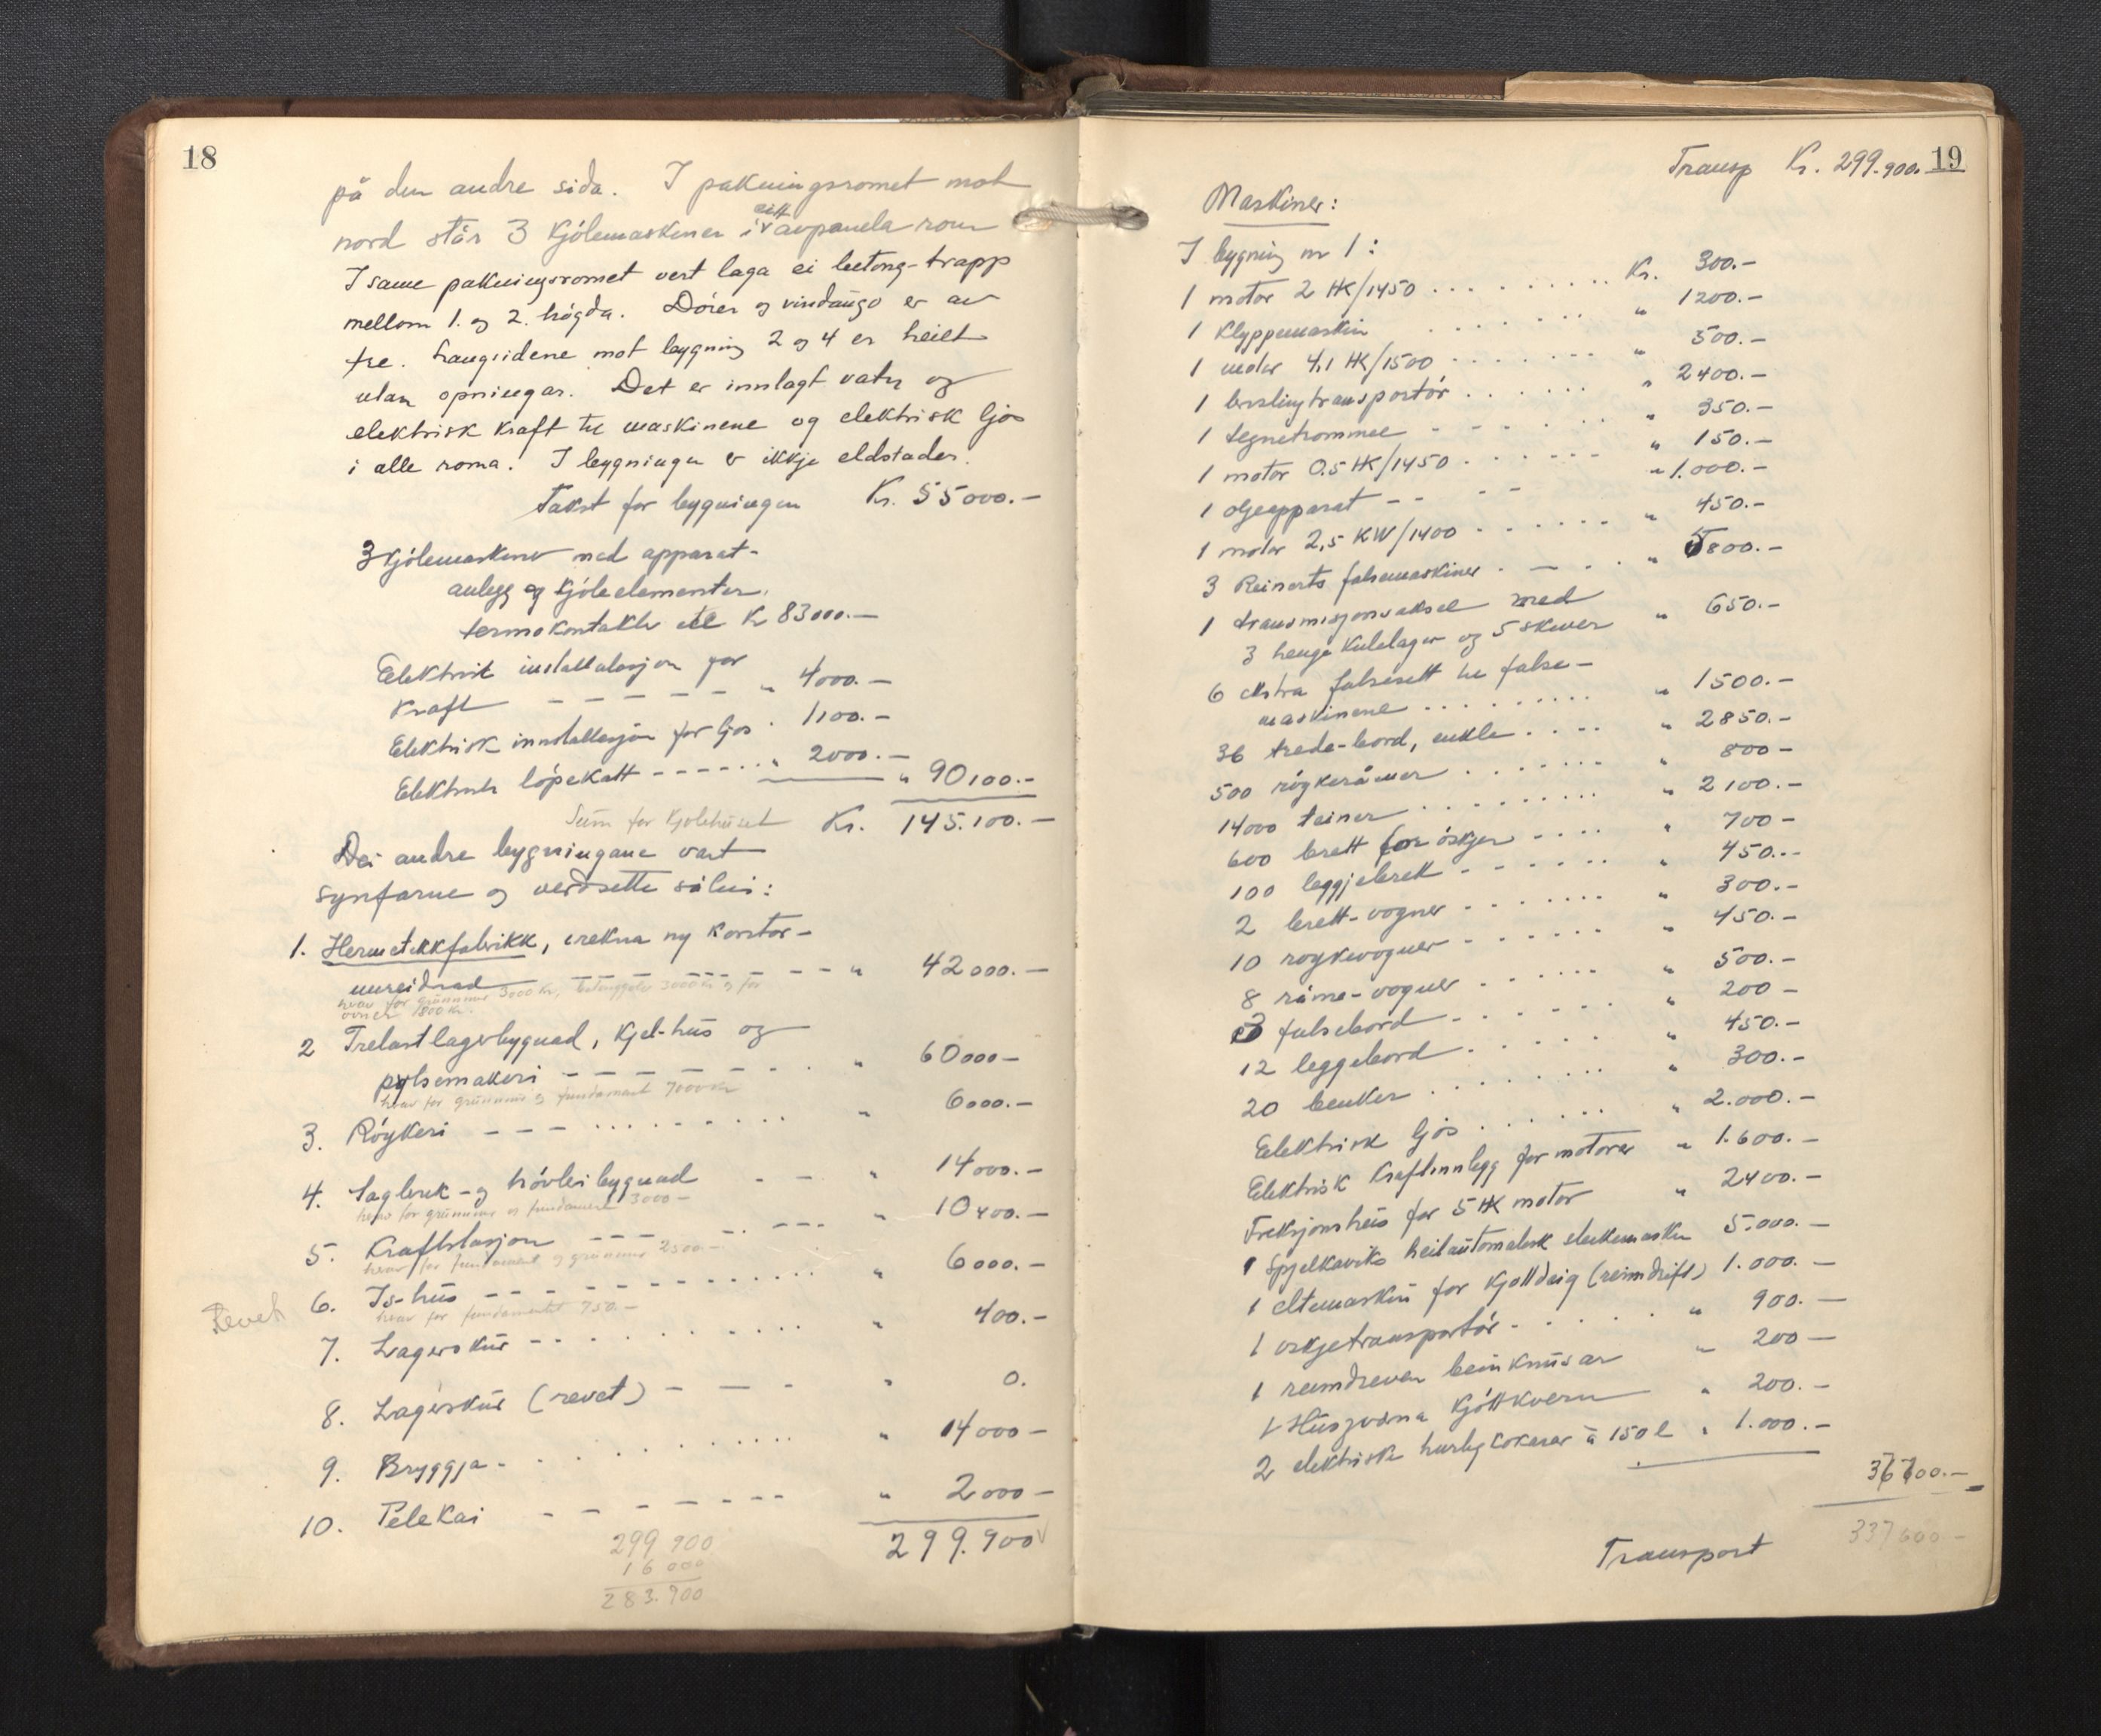 18
på den andre sida. I pakningsromet mot
nord står 3 kjölemaskiner i eitt avpanela rom
I same pakningsromet vert laga ei betong-trapp
mellom 1. og 2. högda. Dörer og vindaugo er av
tre. Langsidene mot bygning 2 og 4 er heilt
utan opningar. Det er innlagt vatn og
elektrisk kraft til maskinene og elektrisk ljos
i alle roma. I bygningen er ikkje eldstader.
Takst for bygningen Kr. 55000.-
3 kjölemaskiner med apparat-
anlegg og kjöleelementer,
termokontakter etc Kr 83000.-
Elektrisk installasjon for
kraft - - - - - - " 4000.-
Elektrisk innstallasjon for ljos . 1100.-
Elektrisk löpekatt - - - - - . . " 2000.-
" 90100.-
Sum for Kjölehuset Kr. 145.100.-
Dei andre bygningane vart
synfarne og verdsette såleis:
1. Hermetikkfabrikk, irekna ny kontor-
innreidnad - - - - - - " 42000.-
herav for grunnmur 3000 kr, betonggolv 3000 kr og for
ovner 1800 kr.
2 Trelastlagerbygnad, kjel-hus og
pylsemakeri - - - - - - - . " 60000-
herav for grunnmur og fundament 7000 kr
3. Röykeri - - - . . . . . . . . " 6000.-
4. Sagbruk- og hövleribygnad - - " 14000.-
herav for grunnmur og fundament 3000-
5. Kraftstasjon - - - - . . - - - " 10400.-
herav for fundament og grunnmur 2500.-
Revet 6. Is-hus - - - - - - . . . . . " 6000.-
herav for fundamentet 750.-
7. Lagerskur - - . . . . . . . " 400.-
8. Lagerskur (revet) - - - " 0.
9. Bryggja - . . . . . . . . " 14000-
10. Pelekai - - - - - - - " 2000-
299.900
299 900
16 000
283.900
Transp Kr. 299.900. 19
Maskiner:
I bygning nr 1:
1 motor 2 HK/1450 . . . . . . . . . Kr. 300.-
1 Klyppemaskin . . . . . . . " 1200.-
1 motor 4,1 HK/1500 . . . . . . . " 500.-
1 brislingtransportör . . . . . . " 2400.-
1 tegnetrommel - - - - . . . " 350.-
1 motor 0.5 HK/1450 . . . . - - - " 150.-
1 oljeapparat - - - - " 1.000.-
1 motor 2,5 KW/1400 . . . . . . " 450.-
3 Reinerts falsemaskiner . - . . " 5800.-
1 transmisjonsaksel med
3 henge kulelager og 5 skiver " 650.-
6 ekstra falsesett til false-
maskinene . . . . . . . . . " 1500.-
36 trede-bord, enkle . . . . " 2850.-
500 röykerâmer . . . . . . . " 800-
14000 teiner . . . . . . . . . " 2100.-
600 brett for öskjer - - . . " 700-
100 leggjebrett - - - - . . " 450.-
2 brett-vogner - . . . . . . " 300.-
10 røykvogner - - . . . . " 450.-
8 råme-vogner - . . . . . " 500.-
3 falsebord - - . . - . . " 200-
12 leggebord . . . . . . " 450.-
20 benker . . . . . . . . " 300.-
Elektrisk ljos . . . . . . " 2.000.-
Elektrisk kraftinnlegg for motorer " 1.600.-
Freksjonshus for 5 HK motor " 2400.-
1 Spjelkaviks heilautomatisk stekemaskin 5.000.-
1 eltemaskin for kjøttdeig (reimdrift) 1.000.-
1 oskjetransportör - . . . . " 900.-
1 reimdreven beinknusar " 200-
1 Husqvarna kjöttkvern " 200.-
2 elektriske hurtigkokarar à 150 l " 1.000.-
37700.-
Transport 337600-